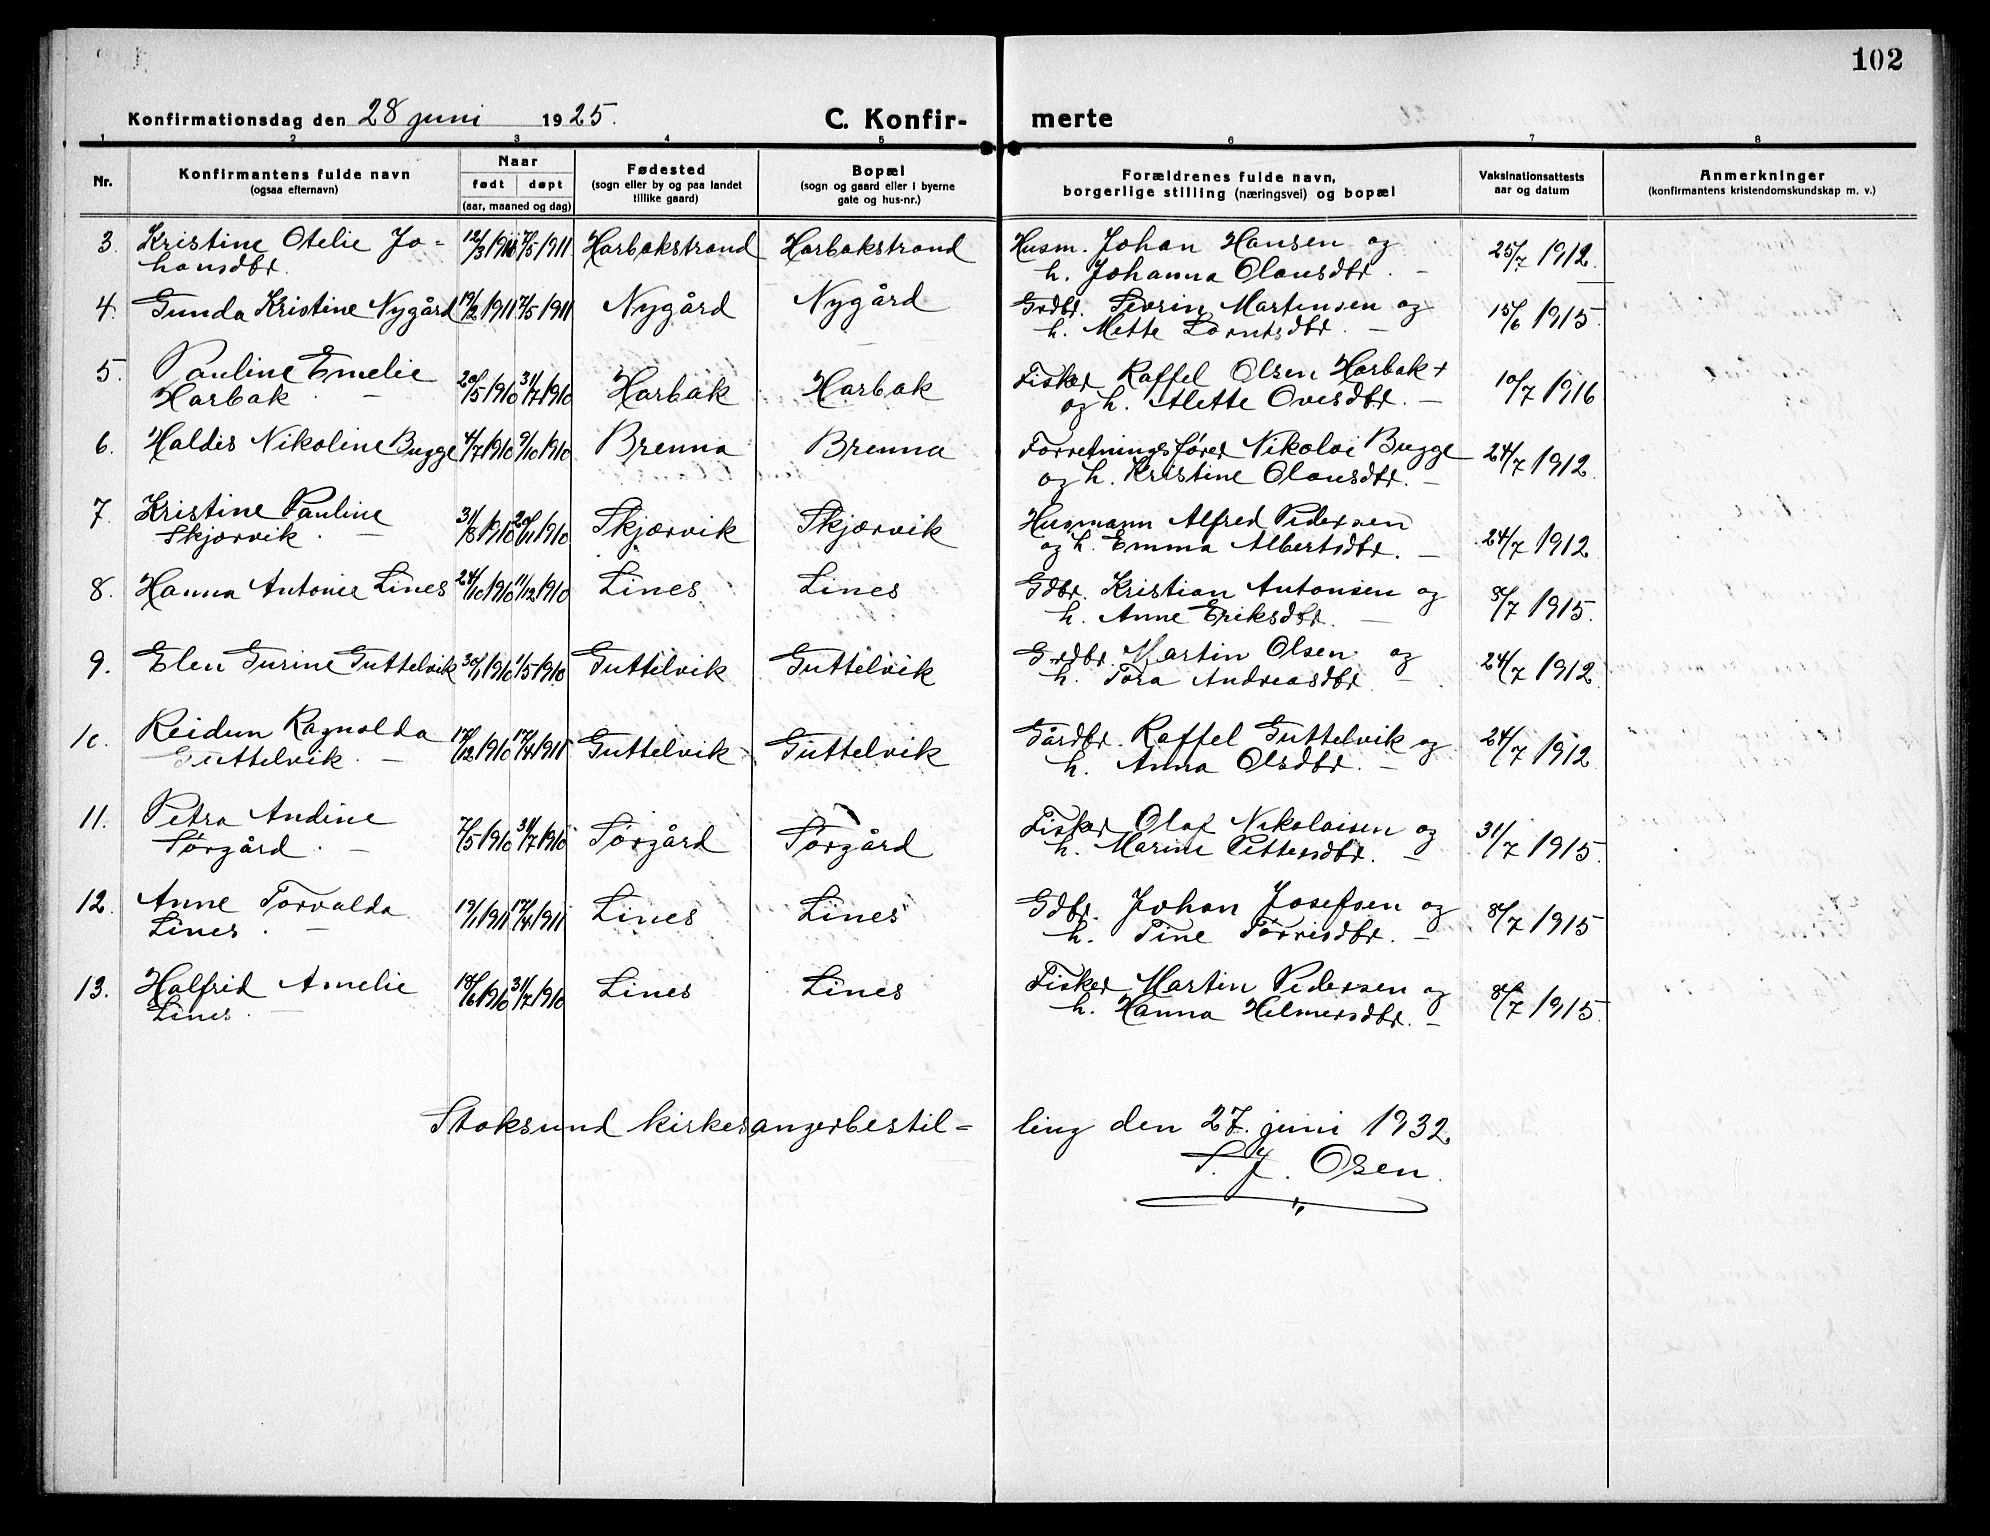 102
Konfirmationsdag den 28 juni 1925. C. Konfirmerte
1 2 3 4 5 6 7 8
Nr. Konfirmantens fulde navn (ogsaa efternavn) Naar født døpt (aar, maaned og dag) Fødested (sogn eller by og paa landet tillike gaard) Bopæl (sogn og gaard eller i byerne gate og hus-nr.) Forældrenes fulde navn, borgerlige stilling (næringsvei) og bopæl Vaksinationsattests aar og datum Anmerkninger (konfirmantens kristendomskundskap m. v.)
3. Kristine Otelie Jo- 12/3 1911 7/5 1911 Harbakstrand Harbakstrand Husm. Johan Hansen og 25/7 1912.
hansdtr. h. Johanna Olausdtr. –
4. Gunda Kristine Nygård 19/2 1911 7/5 1911 Nygård Nygård Grdbr. Sevrin Martinsen og 15/6 1915.
h. Mette Lorntsdtr. –
5. Pauline Emelie 20/5 1910 31/7 1910 Harbak Harbak Fisker Raffel Olsen Harbak + 10/7 1916
Harbak. – og h. Alette Ovesdtr. –
6. Haldis Nikoline Bugge 4/7 1910 9/10 1910 Brenna Brenna Forretningsfører Nikolai Bugge 24/7 1912.
og h. Kristine Olausdtr. –
7. Kristine Pauline 31/8 1910 20/11 1910 Skjærvik Skjærvik Husmann Alfred Pedersen 24/7 1912
Skjærvik. – og h. Emma Albertsdtr. –
8. Hanna Antonie Lines 24/10 1910 11/12 1910 Lines Lines Gdbr. Kristian Antonsen og 8/7 1915.
h. Anne Eriksdtr. –
9. Elen Gurine Guttelvik 30/1 1910 1/5 1910 Guttelvik Guttelvik Grdbr. Martin Olsen og 24/7 1912
h. Tora Andreasdtr. –
10. Reidun Ragnolda 17/12 1910 17/4 1911 Guttelvik Guttelvik Gårdbr. Raffel Guttelvik og 24/7 1912
Guttelvik. – h. Anna Olsdtr. –
11. Petra Andine 7/5 1910 31/7 1910 Sørgård Sørgård Fisker Olaf Nikolaisen og 31/7 1915.
Sørgård. – h. Marine Pettersdtr. –
12. Anne Torvalda 19/1 1911 17/4 1911 Lines Lines Gdbr. Johan Josefsen og 8/7 1915
Lines. – h. Tine Torrisdtr. –
13. Halfrid Amelie 18/6 1910 31/7 1910 Lines Lines Fisker Martin Pedersen og 8/7 1915.
Lines. – h. Hanna Helmersdtr. –
Stoksund kirkesangerbestilling den 27. juni 1932.
S. J. Osen.